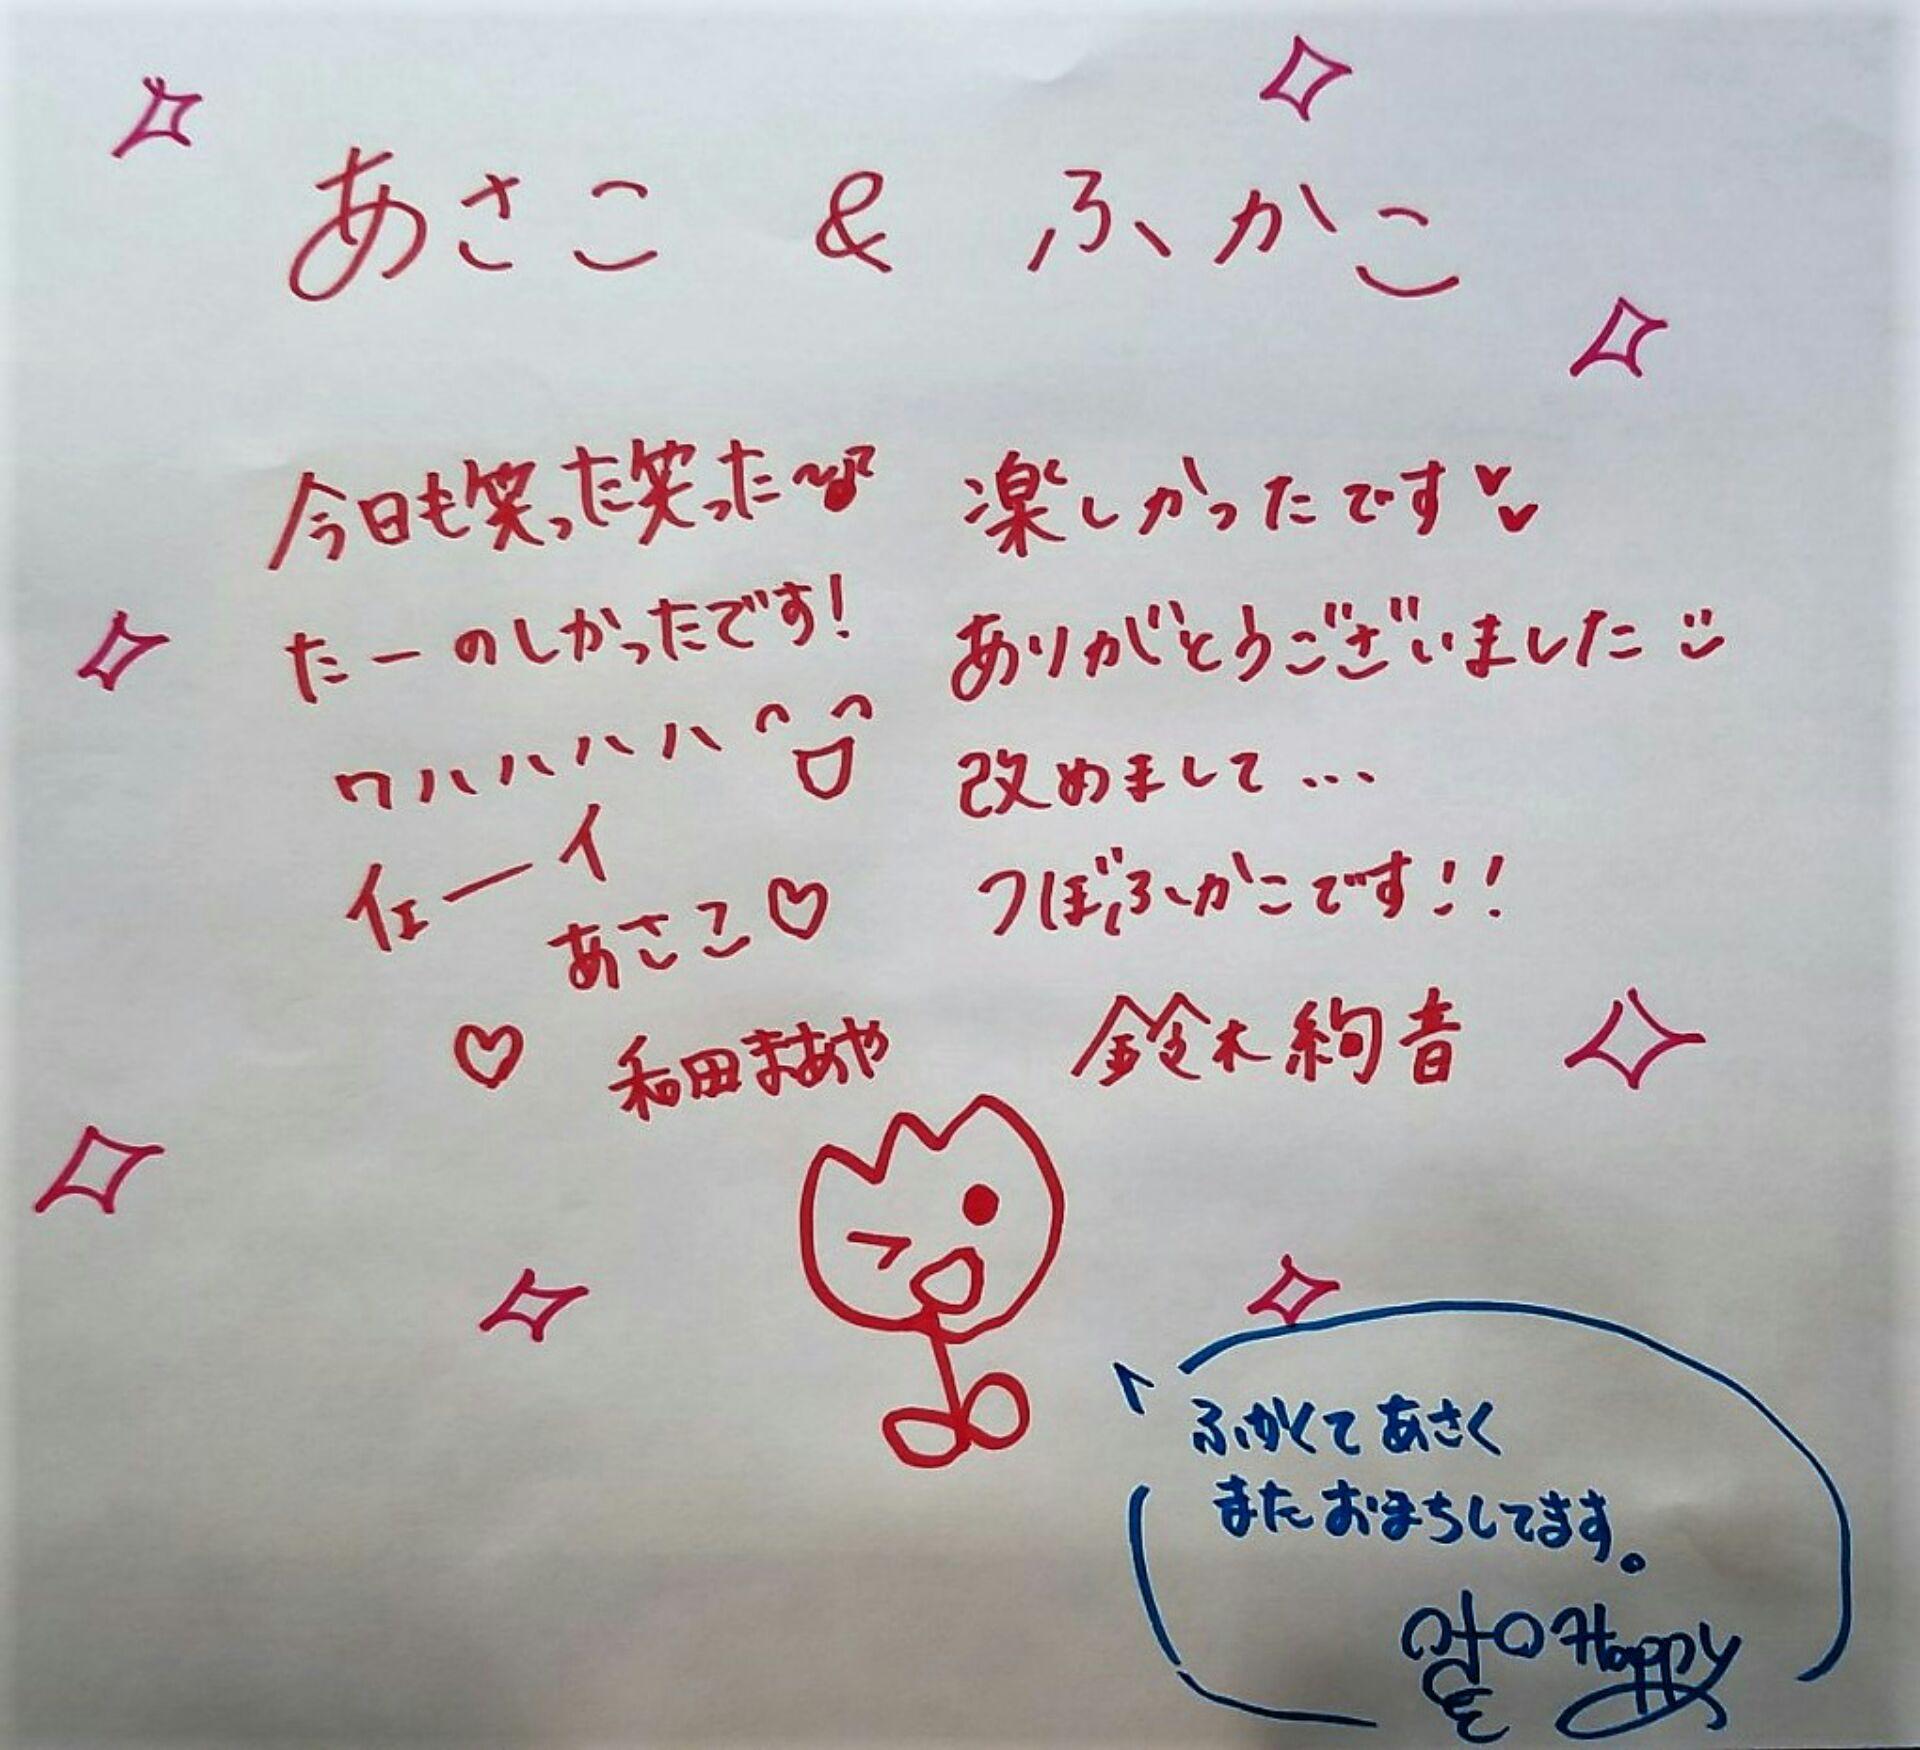 あさこ & ふかこ
今日も笑った笑った〜♪
たーのしかったです!
ワハハハハ
イェーイ
あさこ♡
♡ 和田まあや
楽しかったです
ありがとうございました
改めまして...
つぼふかこです!!
鈴木絢音
ふかくてあさく
またおまちしてます。
Happy